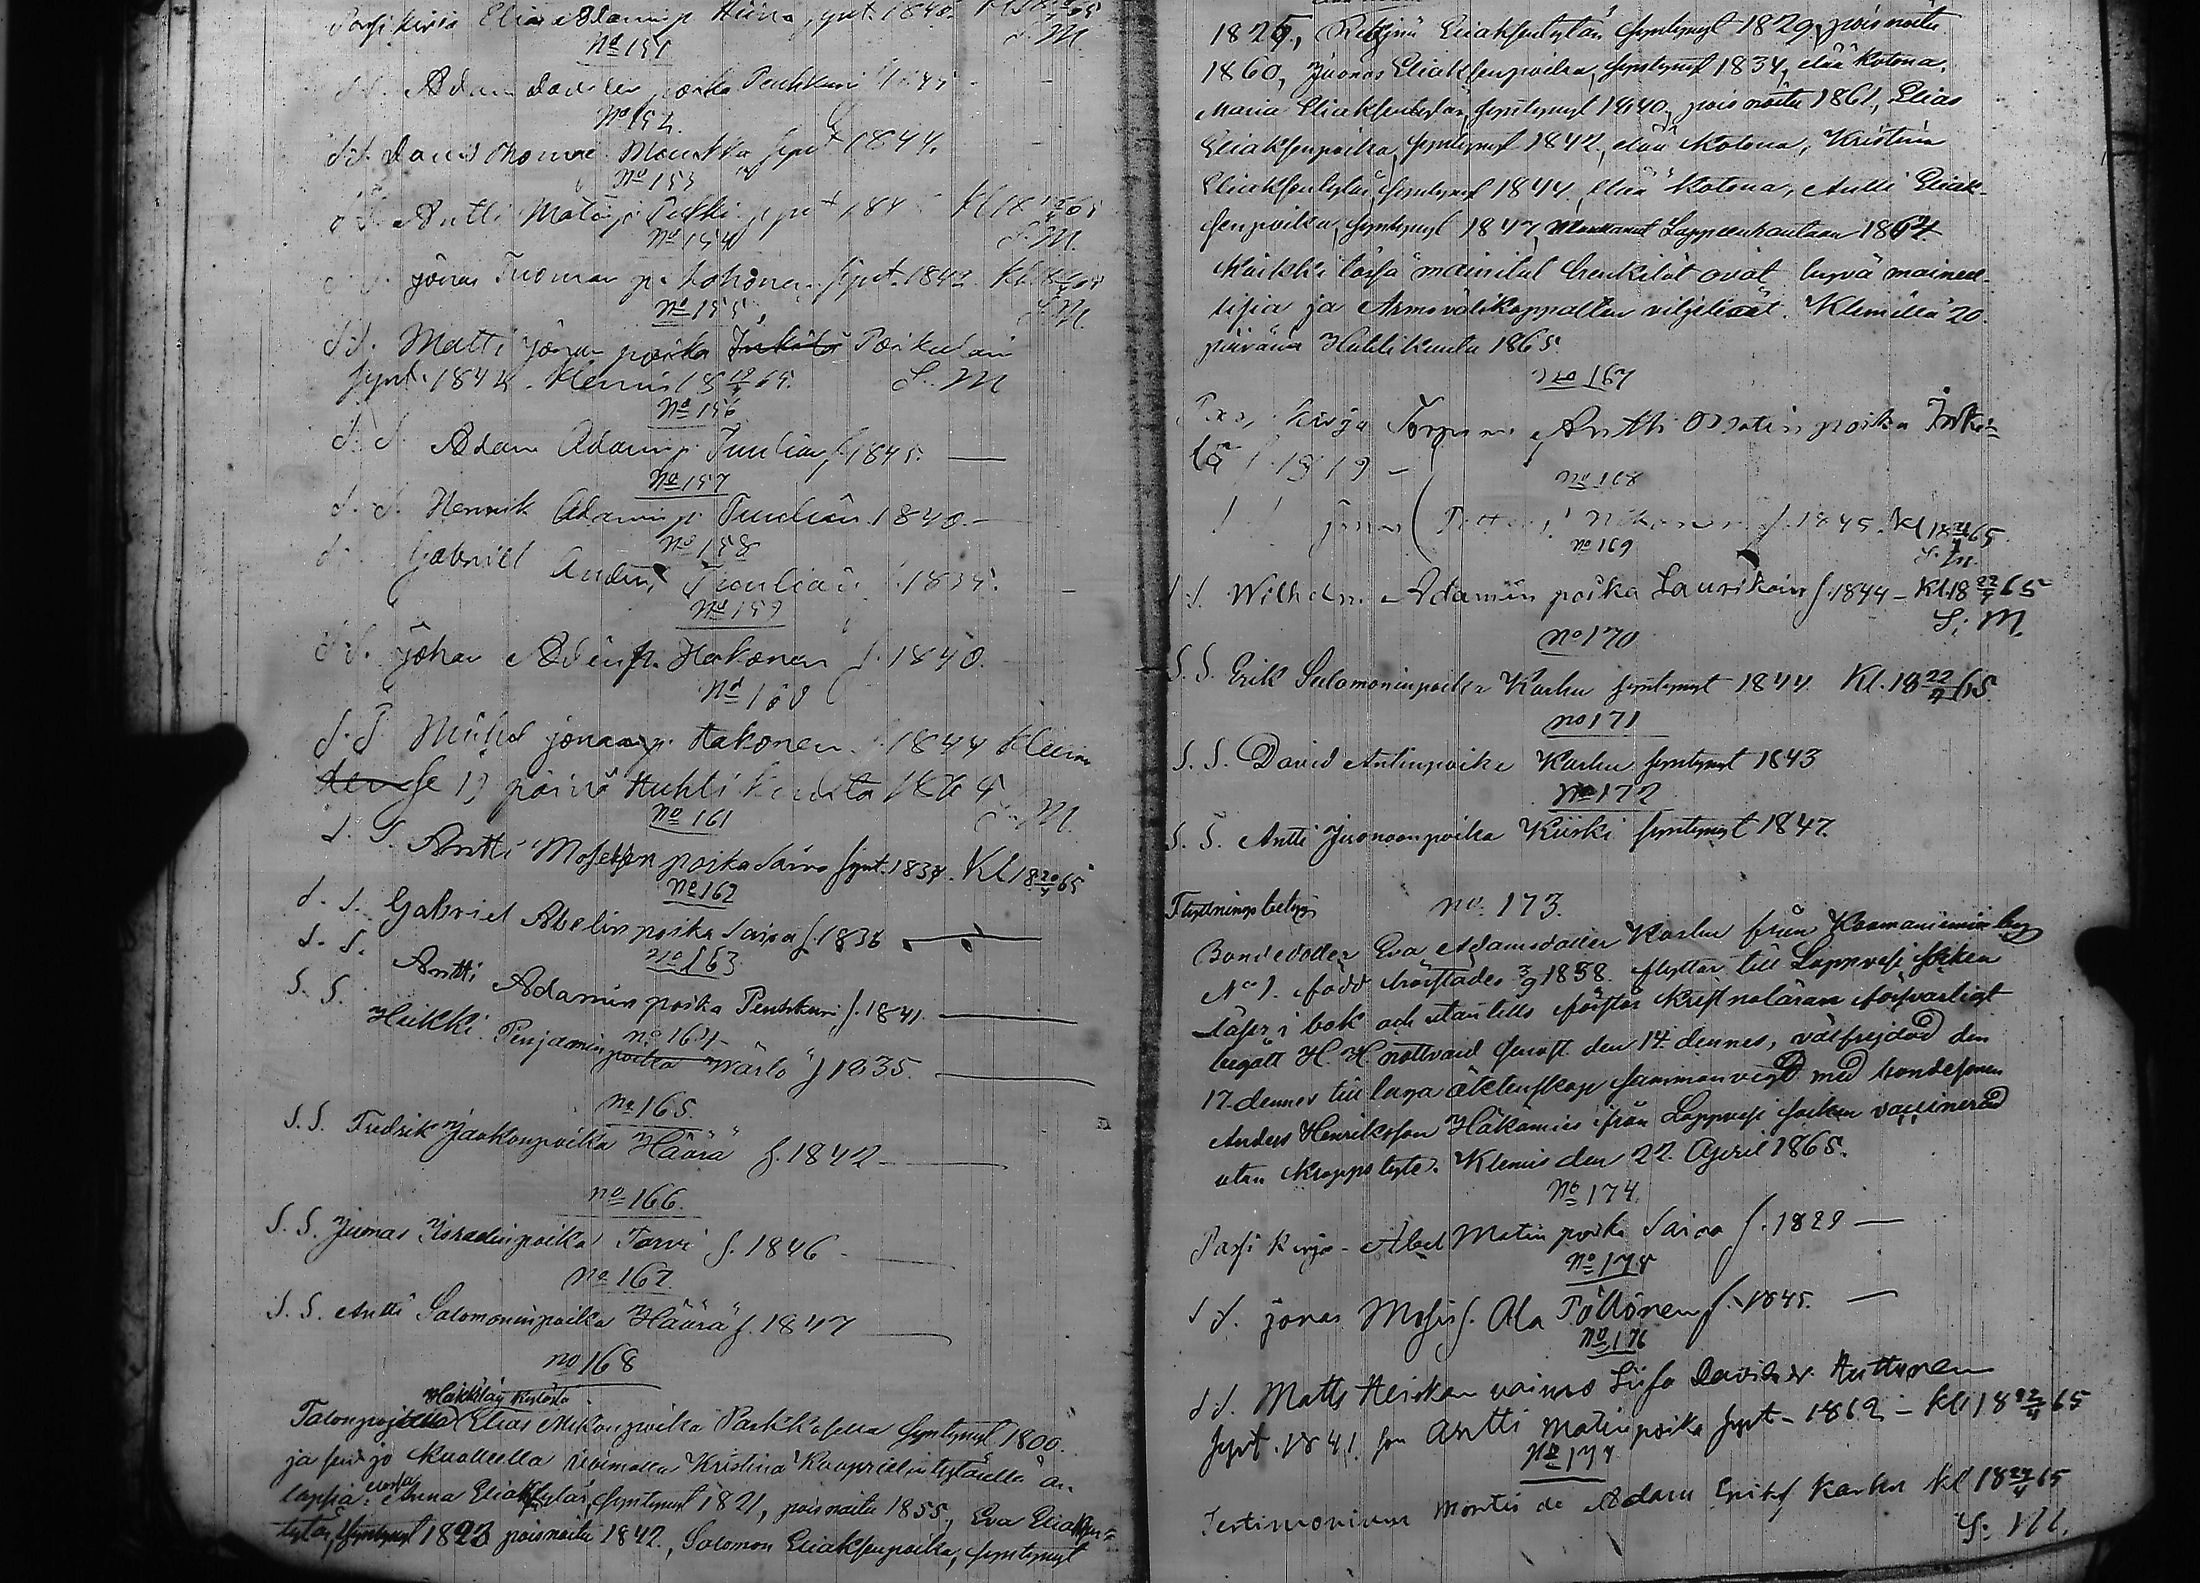 Passi kirja Elias Adamin p. Hiiva, synt. 1840. Kl. 18 65
S. M.
No 151
S. S. Adam poika Penhkuri 1845
No 152.
S. S. David Thomae Monskka synt 1844.
No 153
S. S. Antti Matin p. Pukki synt 184 Kl 18 65
S. M.
No 154
Jönas Tuoman p. Hakonen synt. 1842. Kl. 18 65
S. M.
No 155
S. S. Matti Jonan poika Inkilä Parkulain
synt. 1844. Klemis 18 19/4 65. S. M
No 156
S. S. Adam Adamin p. Tuulian f. 1845. —
No 157
S. S. Hennik Adamin p. Tuulian 1840. —
No 158
S. Gabriel Anders Tuulian f. 1835. —
No 159
S. S. Johan Adamp. Hakonen f. 1840.
No 160
S. S. Mickel Jonan p. Hakonen f. 1844 Klemi
se 19 päivä Huhti kuuta 1865
S. M.
No 161
S. S. Antti Mosessen poika Saira synt. 1834. Kl 18 20/4 65
No 162
S. S. Gabriel Abelin poika Saira f. 1836 —
No 163
S. S. Antti Adamin poika Penhkuri f. 1841. —
No 164
S. S. Heikki Penjamin poika Wärlö f 1835. —
No 165.
S. S. Fredrik Jaakonpoika Häärä f. 1842 —
No 166.
S. S. Juonas Israelinpoika Torvi f. 1846 —
No 167.
S. S. Antti Salomoninpoika Häärä f. 1847 —
No 168
Häkkilän kylästä
Talonpojalla Elias Mikonpoika Parkkosella syntynyt 1800
ja sen jo kuolleella vaimolla Kristina Kaaprielintytärellä on
lapsia: Anna Eliaksentytär, syntynyt 1821, pois naitu 1855, Eva Eliaksen=
tytär, syntynyt 1823 poisnaitu 1842., Salomon Eliaksenpoika, syntynyt
1825, Reijna Eliaksentytär syntynyt 1829, pois naitu
1860, Juonas Eliaksenpoika, syntynyt 1834, elää kotona.
Maria Eliaksentytär, syntynyt 1840, pois naitu 1861, Elias
Eliaksenpoika, syntynyt 1842, elää kotona, Kristina
Eliaksentytär, syntynyt 1844, elää kotona, Antti Eliak-
senpoika, syntynyt 1847, Lappeenrantaan 1864.
Kaikki tässä mainitut henkilöt ovat hyvä maineel-
lisia ja Armovälikappalten viljeliät. Klemillä 20.
päivänä Huhtikuuta 1865.
No 167
Passi kirja Torpparin Antti Matin poika Inki=
lä f. 1819 —
No 168
S. S. Jonas Petter Nikonen f. 1845. Kl 18 21/4 65
S. M.
No 169
S. S. Wilhelm Adamin poika Laurikain f. 1844 — Kl. 18 22/4 65
S. M.
No 170
S. S. Erik Salomoninpoika Karhu syntynyt 1844. Kl. 18 22/4 65.
No 171
S. S. David Antinpoika Karhu syntynyt 1843
No 172
S. S. Antti Juonaanpoika Kiiski syntynyt 1847.
Flyttningsbetyg No. 173.
Bondedotter Eva Adamsdotter Karhu från Kaamaniemis by
No 1. född härstädes 3/9 1838. flyttar till Lappvesi socken
läser i bok och utantills förstår kristnaläran försvarligt
begått H. H. nattvard senast den 14 dennes, välfrejdad den
17 dennes till laga äktenskap sammanvigd med bondesonen
Anders Henriksson Häkämies ifrån Lappvesi socken vaccinerad
utan kroppslyte. Klemis den 22. April 1865.
No 174.
Passi kirja - Abel Matin poika Saira f. 1829 —
No 175
S S. Jonas Moses f. Ala Pöllönen f. 1845. —
No 176
S S. Matts Heiskan vaimo Liisa Davids dr. Anttonen
synt. 1841. son Antti Matinpoika synt - 1862 — Kl 18 22/4 65
No 177
Testimonium Mortis de Adam Eriks Karhu Kl 18 24/4 65
S: M.